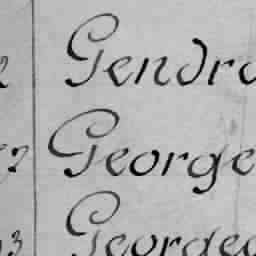 2 Gendr
72 George
3 George